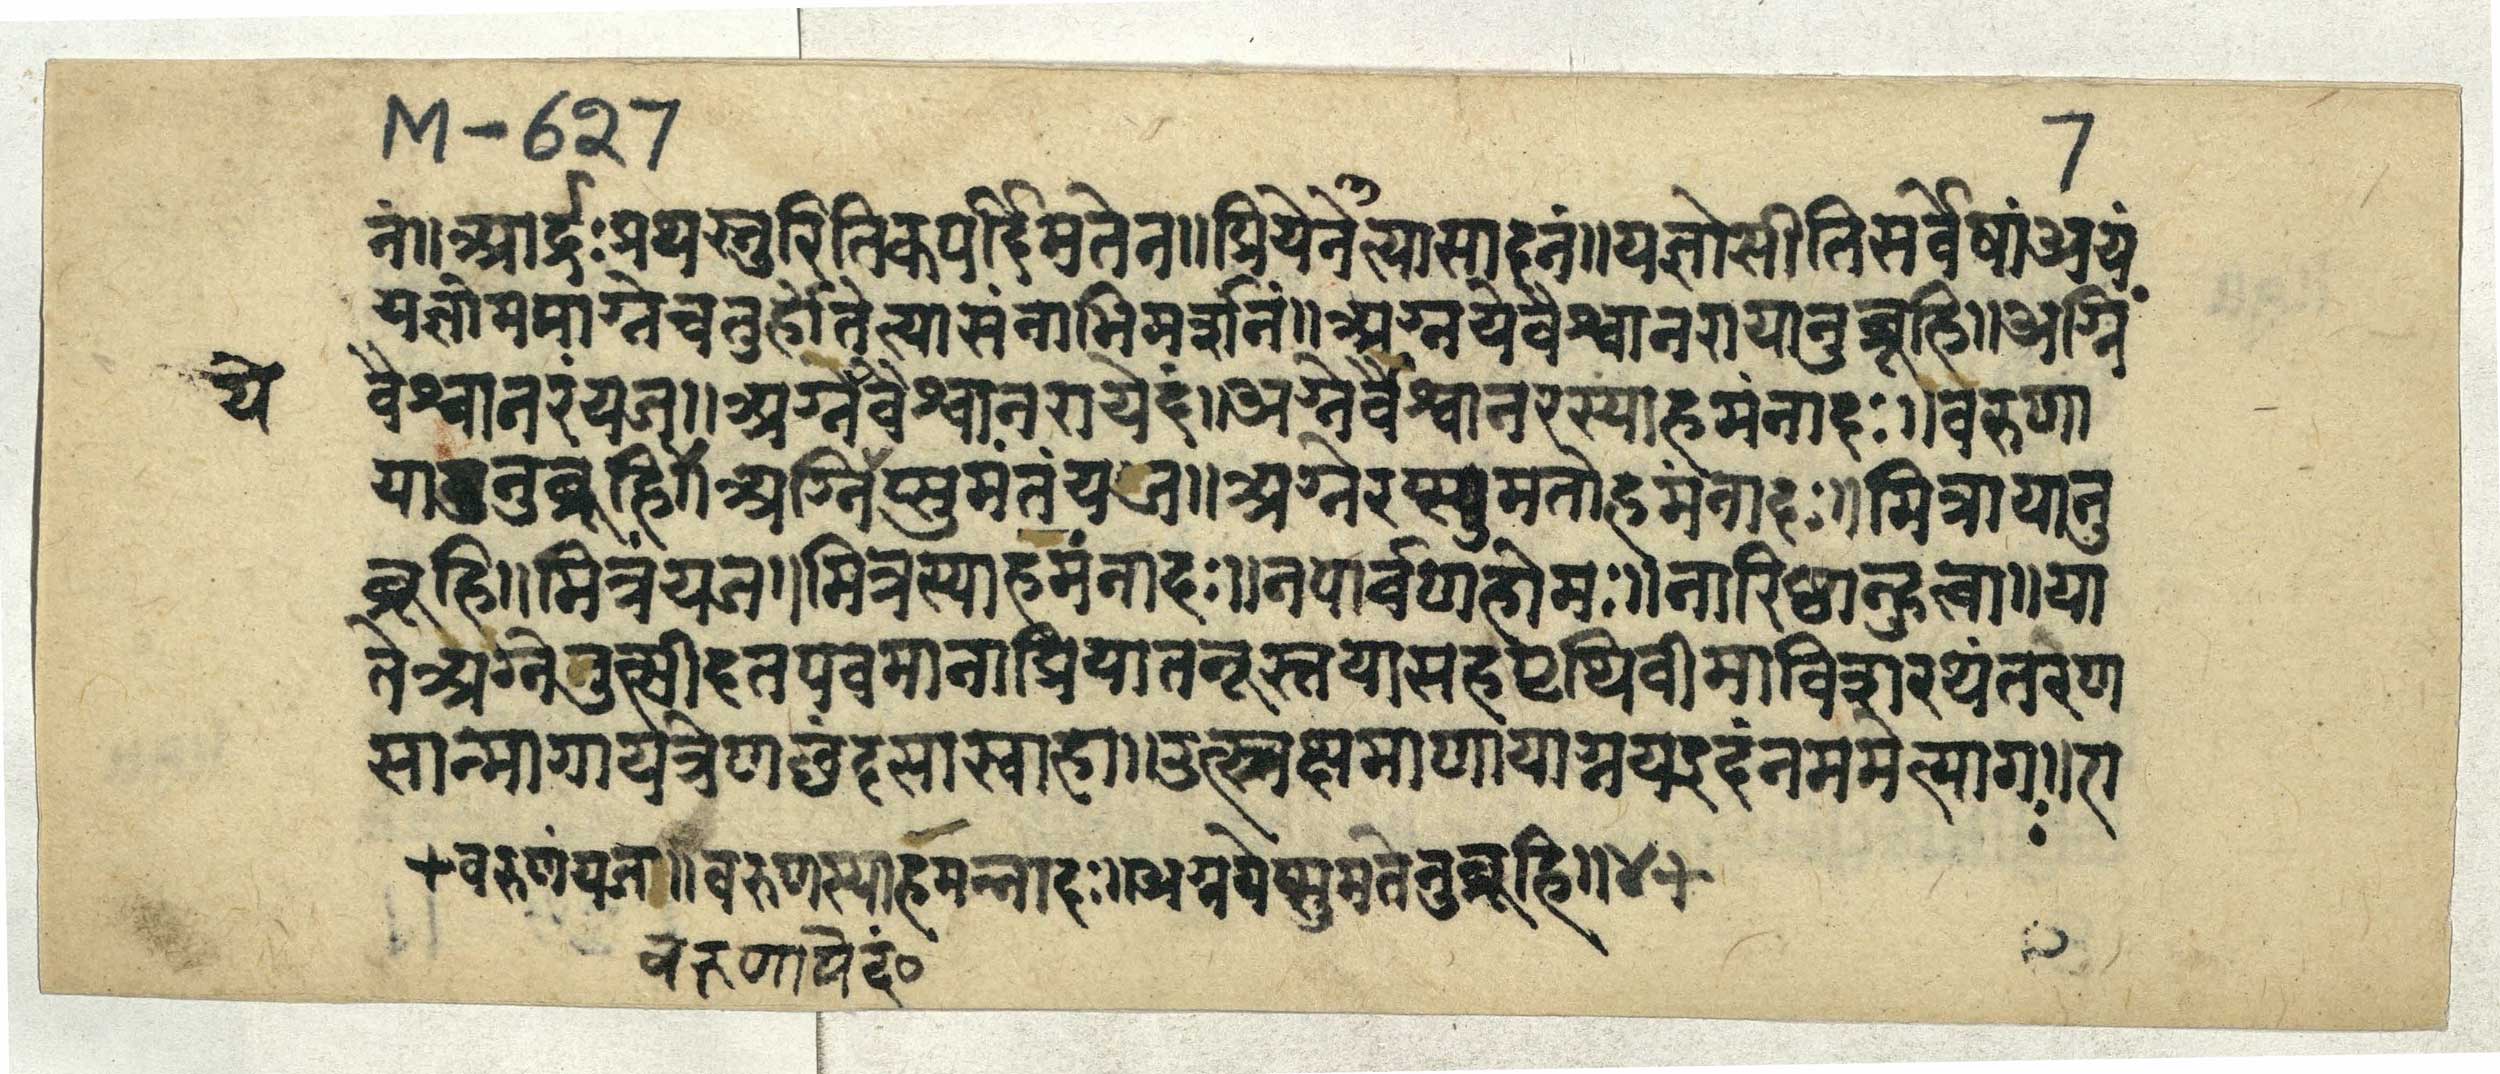 M-627
7
नं॥आर्द्रः प्रथस्नुरितिकपर्दिमतेन॥प्रियेनेत्यासादनं॥यज्ञोसीतिसर्वेषांअयं
यज्ञोममाग्नेचतुर्होतेत्यासंनाभिमर्शनं॥अग्नयेवैश्वानरायानुब्रूहि॥अग्निं
ये
वैश्वानरंयज॥अग्नेवैश्वानरायेदं॥अग्नेर्वैश्वानरस्याहमंनादः॥वरुणा
यानुब्रूहि॥अग्निमप्सुमंतंयज॥अग्नेरप्सुमतोहमंनादः॥मित्रायानु
ब्रूहि॥मित्रंयज॥मित्रस्याहमंनादः॥नपार्वणहोमः॥नारिष्ठान्हुत्वा॥या
तेअग्नेनुत्सीदतपवमानाप्रियातनूस्तयासहपृथिवीमाविशरथंतरेण
साम्नागायत्रेणछंदसास्वाहा॥उत्स्रक्ष्यमाणायाग्नयइदंनममेत्यागः॥रा
+वरुणंयज॥वरुणस्याहमन्नादः॥अग्नयेप्सुमतेनुब्रूहि॥४+
वरुणायेदं०